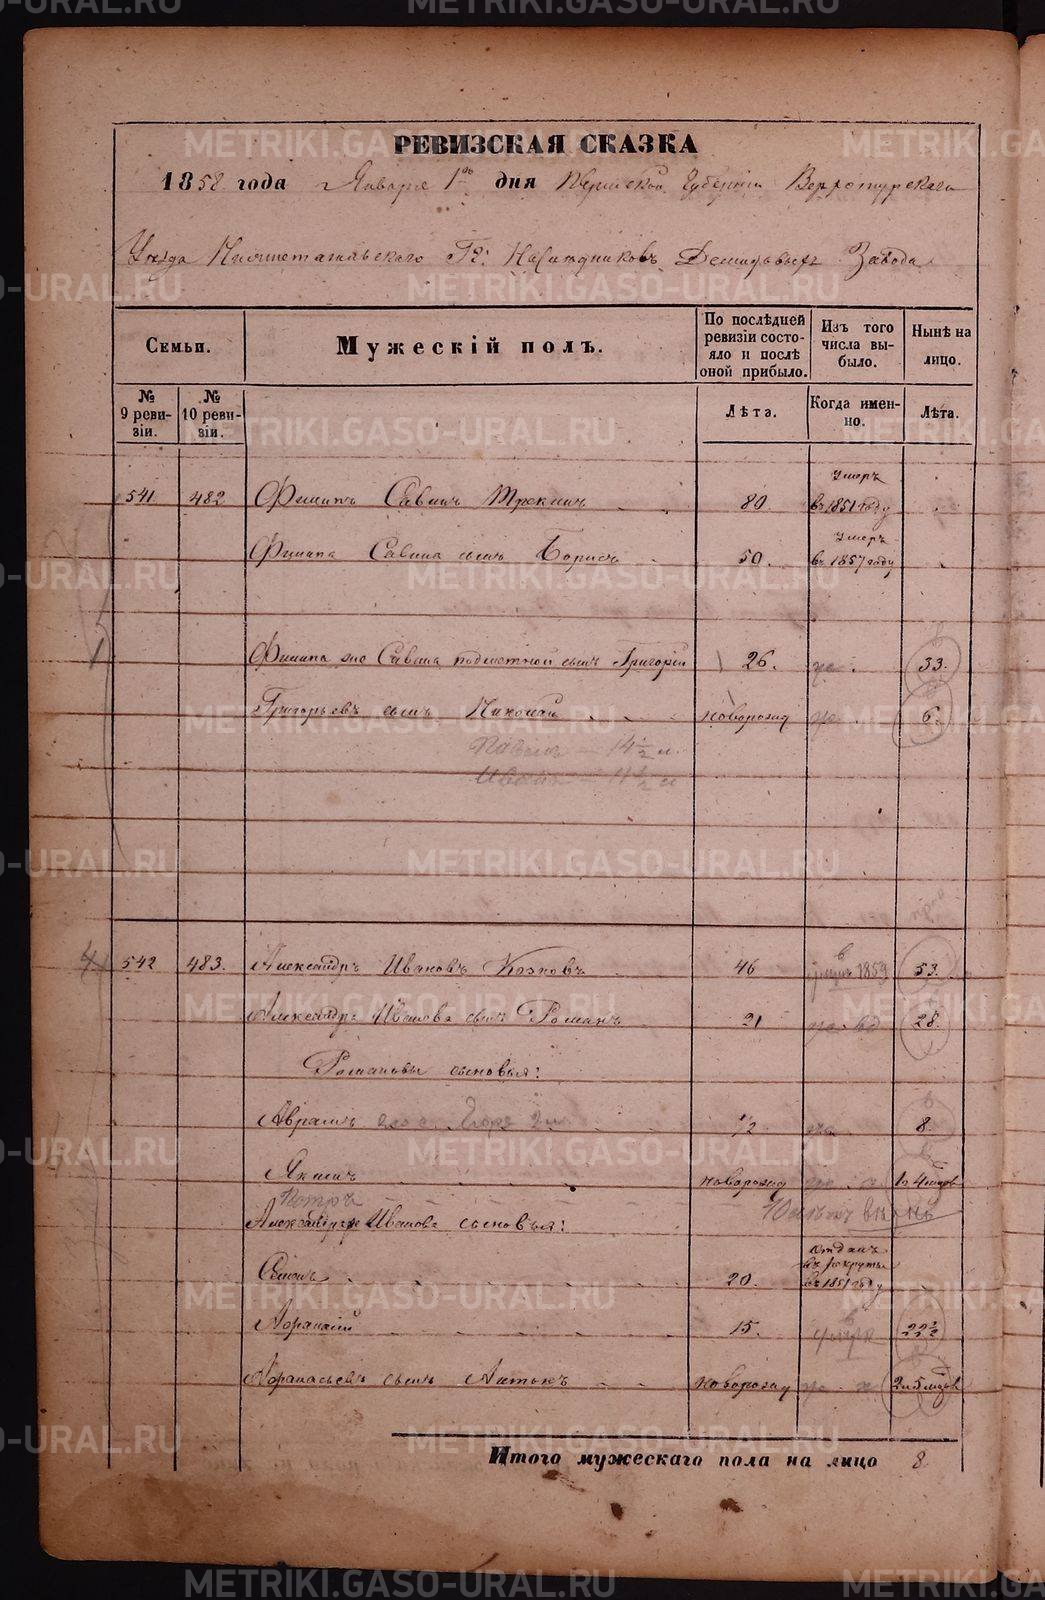 РЕВИЗСКАЯ СКАЗКА
1858 года Января 1го дня Пермской Губерніи Верхотурскаго
Уѣзда Нижнетагильскаго Гг: Наслѣдниковъ Демидовыхъ Завода
Семьи.
Мужескій полъ.
По послѣдней ревизіи состояло и послѣ оной прибыло.
Изъ того числа выбыло.
Нынѣ на лицо.
№ 9 ревизіи.
№ 10 ревизіи.
Лѣта.
Когда именно.
Лѣта.
541 482 Филипъ Савинъ 80 умеръ въ 1851 году
Филипа Савина сынъ Борисъ 50. умеръ въ 1857 году
Филипа Савина сынъ Григорій 26. 33.
Григорьевъ сынъ Николай новорожд 6.
Павелъ — 14 1/2
Иванъ — 11 1/2
542 483. Александръ Ивановъ Козловъ 46 1859 53.
Александра Иванова сынъ Романъ 21 28.
Романовы сыновья:
Аврамъ 1/2 8.
Якимъ новорожд 4
Петръ
Александра Иванова сыновья:
Семенъ 20. отданъ въ рекруты въ 1851 году
Афанасій 15. 22 1/2
Афанасьевъ сынъ Антонъ новорожд 2 5
Итого мужескаго пола на лицо 8
METRIKI.GASO-URAL.RU